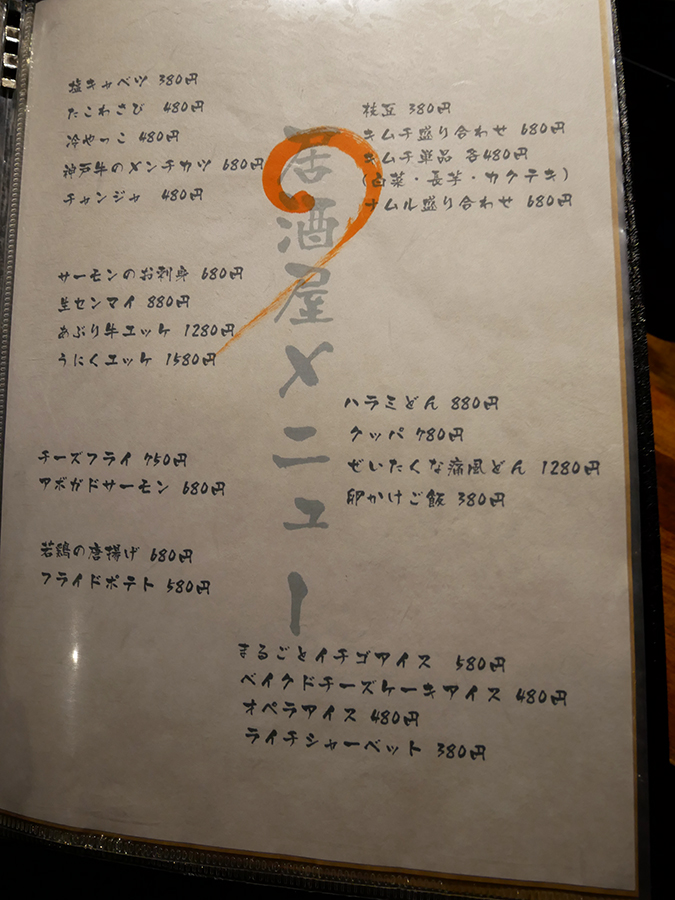 塩キャベツ 380円
たこわさび 480円
冷やっこ 480円
神戸牛のメンチカツ 680円
チャンジャ 480円
枝豆 380円
キムチ盛り合わせ 680円
キムチ単品 各480円
(白菜・長芋・カクテキ)
ナムル盛り合わせ 680円
居酒屋メニュー
サーモンのお刺身 680円
生センマイ 880円
あぶり牛エッケ 1280円
うにくエッケ 1580円
ハラミどん 880円
クッパ 780円
ぜいたくな痛風どん 1280円
卵かけご飯 380円
チーズフライ 750円
アボガドサーモン 680円
若鶏の唐揚げ 680円
フライドポテト 580円
まるごとイチゴアイス 580円
ベイクドチーズケーキアイス 480円
オペラアイス 480円
ライチシャーベット 380円